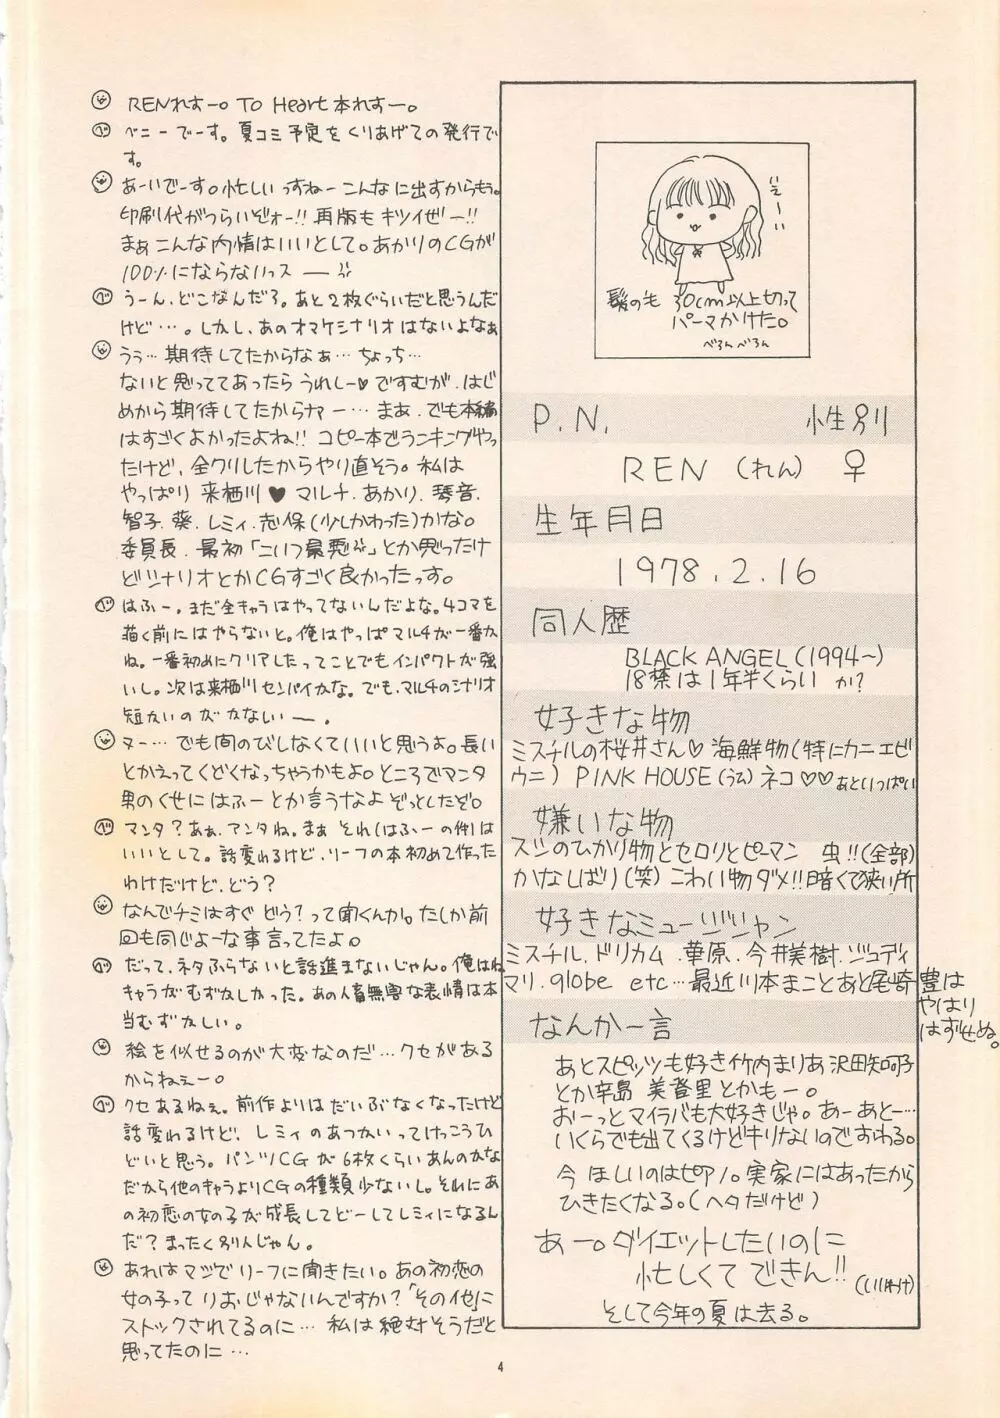 RENれすー。To Heart本れすー。
ベ ベニーでーす。夏コミ予定をくりあげての発行で
す。
あーいでーす。忙しいっすねーこんなに出すからもぅ。
印刷代がつらいぞォー!! 再版もキツイぜー!!
まぁこんな内情はいいとして。あかりのCGが
100%にならないっスー
ベ うーん、どこなんだろ。あと2枚ぐらいだと思うんだ
けど…。しかし、あのオマケシナリオはないよなぁ
うぅ…期待してたからなぁ…ちょっち…
ないと思っててあったらうれしー♥ですむが、はじ
めから期待してたからナァー…まあ、でも本編
はすごくよかったよね!! コピー本でランキングやっ
たけど、全クリしたからやり直そう。私は
やっぱり来栖川♥マルチ、あかり、琴音、
智子、葵、レミィ、志保(少しかわった)かな。
委員長、最初「こいつ最悪」とか思ったけ
どシナリオとかCGすごく良かったっす。
ベ はふー、まだ全キャラはやってないんだよな。4コマを
描く前にはやらないと。俺はやっぱマルチが一番か
ね。一番初めにクリアしたってことでもインパクトが強
いし。次は来栖川センパイかな。でも、マルチのシナリオ
短かいのがかなしいー。
ヌー…でも間のびしなくていいと思うよ。長い
とかえってくどくなっちゃうかもよ。ところでマンタ
男のくせにはふーとか言うなよぞっとしたぞ。
ベ マンタ?あぁ、アンタね。まぁそれ(はふーの件)は
いいとして。話変わるけど、リーフの本初めて作った
わけだけど、どう?
なんでチミはすぐどう?って聞くんか。たしか前
回も同じよーな事言ってたよ。
ベ だって、ネタふらないと話進まないじゃん。俺はね
キャラがむずかしかった。あの人畜無害な表情は本
当むずかしい。
絵を似せるのが大変なのだ…クセがある
からねぇー。
ベ クセあるねぇ。前作よりはだいぶなくなったけど
話変わるけど、レミィのあつかいってけっこうひ
どいと思う。パンツCGが6枚くらいあんのかな
だから他のキャラよりCGの種類少ないし。それにあ
の初恋の女の子が成長してどーしてレミィになるん
だ?まったく別人じゃん。
あれはマジでリーフに聞きたい。あの初恋の
女の子ってりおじゃないんですか?「その他」に
ストックされてるのに…私は絶対そうだと
思ってたのに…
いえーい
髪の毛 30cm以上切って
パーマかけた。
べろんべろん
P.N. 性別
REN(れん) ♀
生年月日
1978.2.16
同人歴
BLACK ANGEL(1994〜)
18禁は1年半くらいか?
好きな物
ミスチルの桜井さん♡海鮮物(特にカニエビ
ウニ) PINK HOUSE(うむ)ネコ♡♡あといっぱい
嫌いな物
スシのひかり物とセロリとピーマン 虫!!(全部)
かなしばり(笑)こわい物ダメ!!暗くて狭い所
好きなミュージジャン
ミスチル、ドリカム、華原、今井美樹、ジュディ
マリ、globe etc…最近川本まことあと尾崎豊は
やはり
はずせぬ。
なんか一言
あとスピッツも好き竹内まりあ沢田知可子
とか辛島美登里とかもー。
おーっとマイラバも大好きじゃ。あーあとー…
いくらでも出てくるけどキリないのですわる。
今ほしいのはピアノ。実家にはあったから
ひきたくなる。(ヘタだけど)
あー。ダイエットしたいのに
忙しくてできん!!(いいわけ)
そして今年の夏は去る。
4